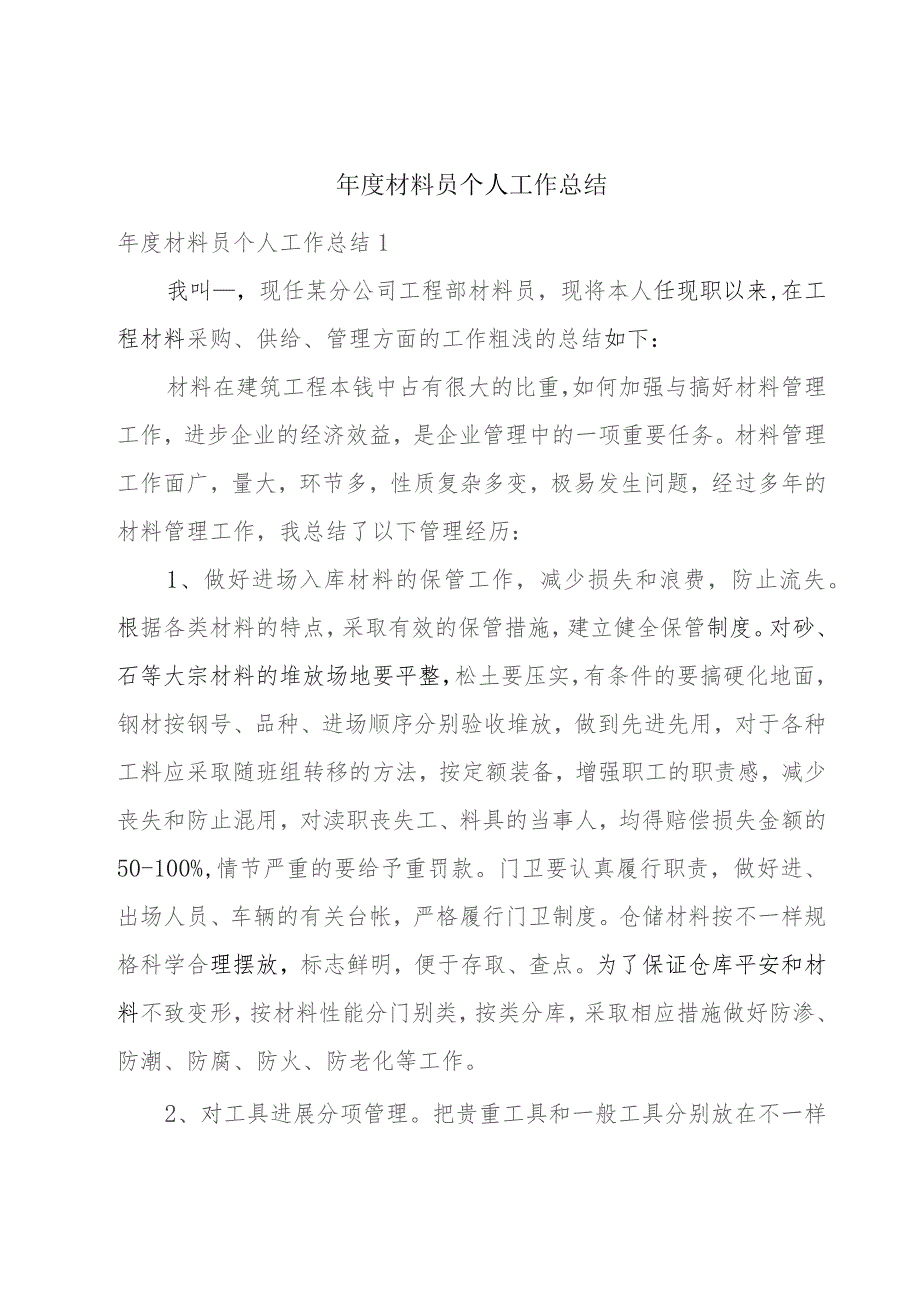 年度材料员个人工作总结
年度材料员个人工作总结1
我叫一，现任某分公司工程部材料员，现将本人任现职以来,在工
程材料采购、供给、管理方面的工作粗浅的总结如下：
材料在建筑工程本钱中占有很大的比重,如何加强与搞好材料管理
工作，进步企业的经济效益，是企业管理中的一项重要任务。材料管理
工作面广，量大，环节多，性质复杂多变，极易发生问题，经过多年的
材料管理工作，我总结了以下管理经历：
1、做好进场入库材料的保管工作，减少损失和浪费，防止流失。
根据各类材料的特点，采取有效的保管措施，建立健全保管制度。对砂、
石等大宗材料的堆放场地要平整，松土要压实，有条件的要搞硬化地面，
钢材按钢号、品种、进场顺序分别验收堆放，做到先进先用，对于各种
工料应采取随班组转移的方法，按定额装备，增强职工的职责感，减少
丧失和防止混用，对渎职丧失工、料具的当事人，均得赔偿损失金额的
50-100%,情节严重的要给予重罚款。门卫要认真履行职责，做好进、
出场人员、车辆的有关台帐，严格履行门卫制度。仓储材料按不一样规
格科学合理摆放，标志鲜明，便于存取、查点。为了保证仓库平安和材
料不致变形，按材料性能分门别类，按类分库，采取相应措施做好防渗、
防潮、防腐、防火、防老化等工作。
2、对工具进展分项管理。把贵重工具和一般工具分别放在不一样